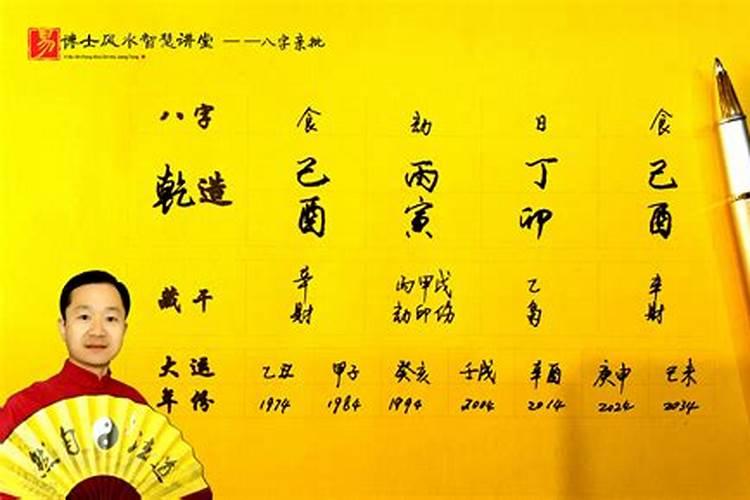 易 博士风水智慧讲堂 ——八字亲批
八字 食 劫 日 食
乾造 己 丙 丁 己
酉 寅 卯 酉
藏干 辛 丙甲戊 乙 辛
财 劫印伤 枭 财
大运 乙丑 甲子 癸亥 壬戌 辛酉 庚申 己未
年份 1974 1984 1994 2004 2014 2024 2034
然自法道